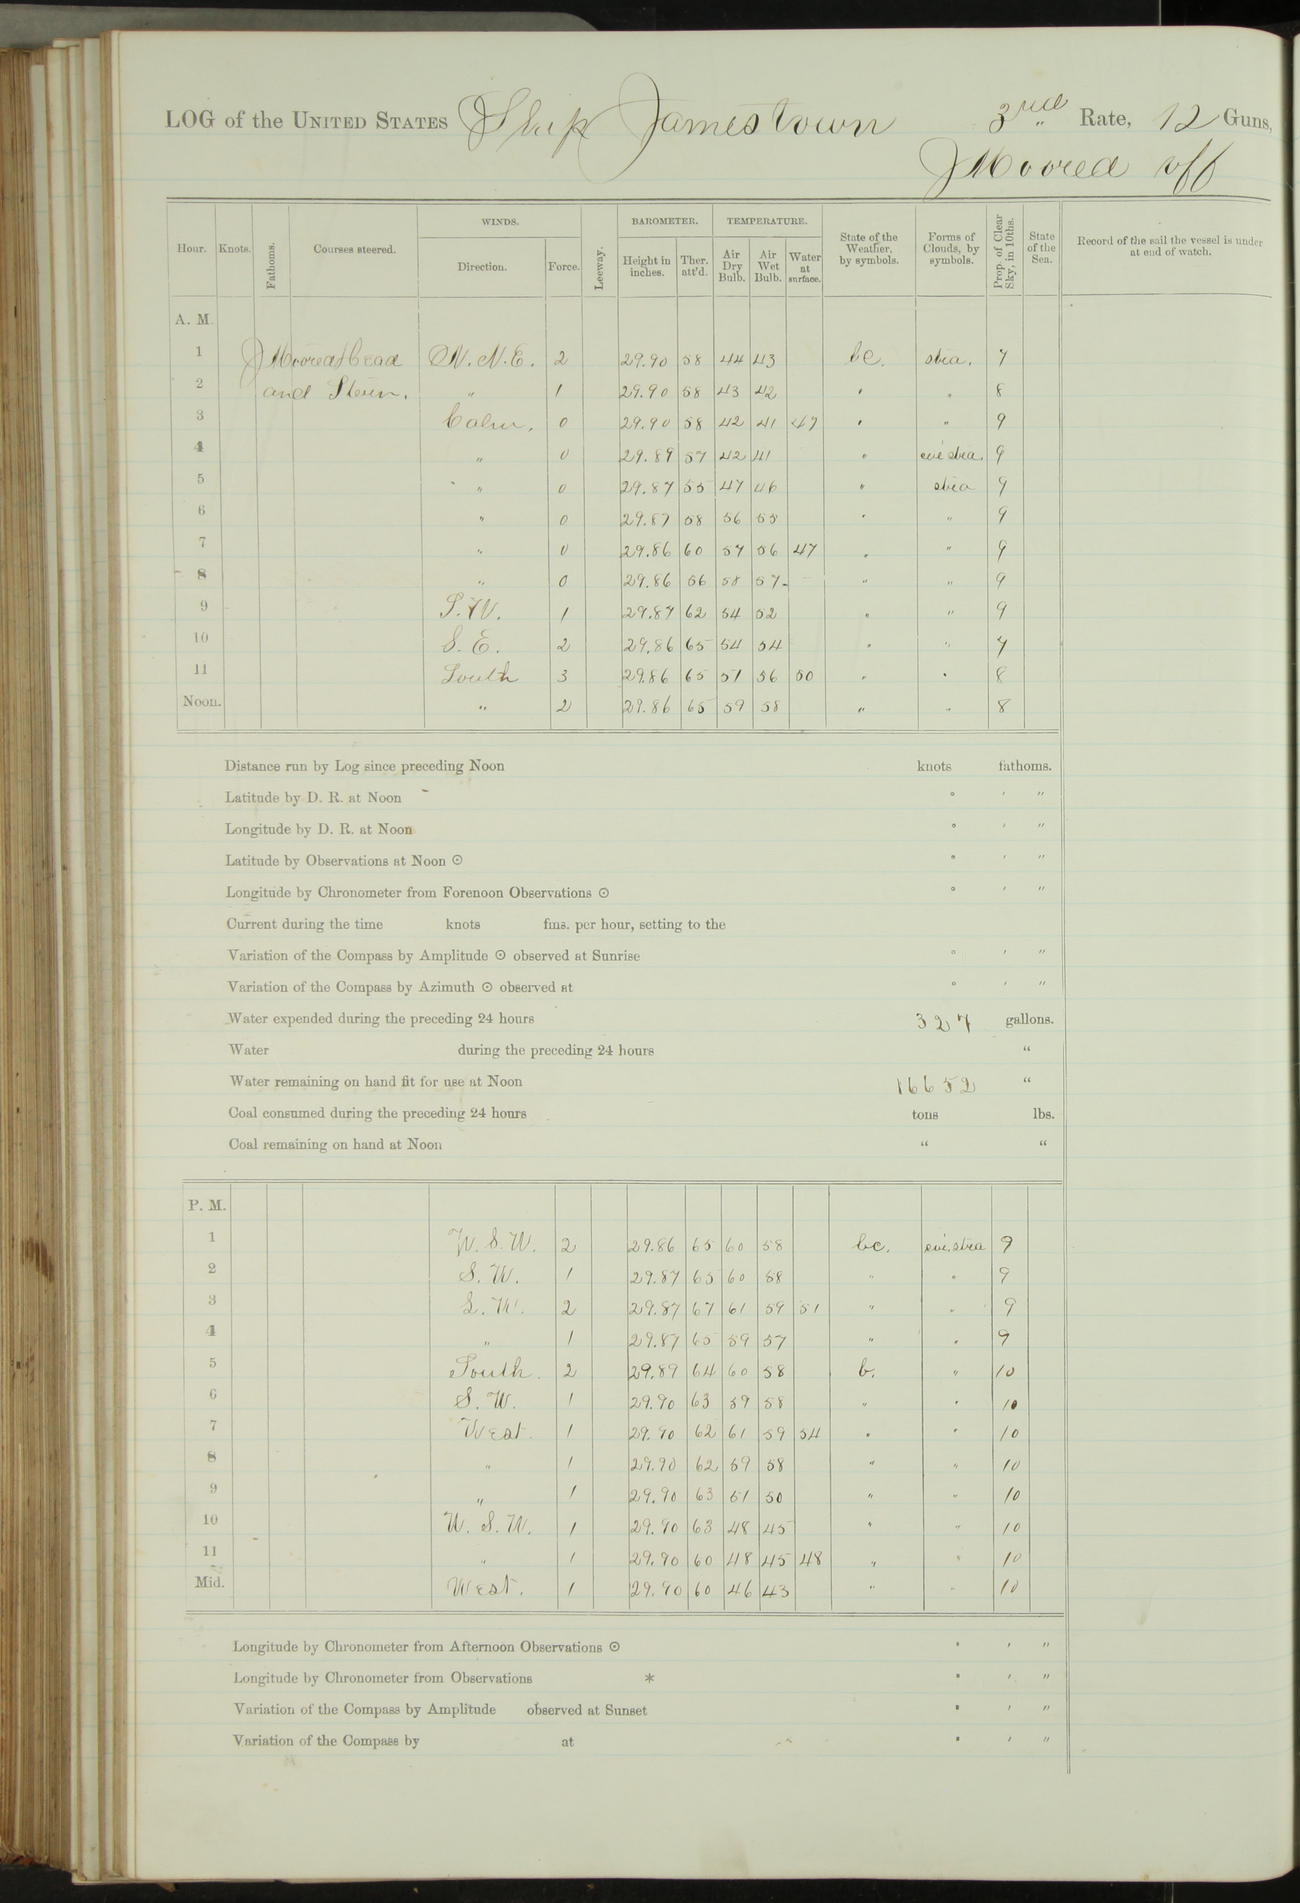 LOG of the UNITED STATES Ship Jamestown 3rd " Rate, 12 Guns,
Moored off
Hour. Knots. Fathoms. Courses steered. WINDS. Direction. Force. Leeway. BAROMETER. Height in inches. Ther. att'd. TEMPERATURE. Air Dry Bulb. Air Wet Bulb. Water at surface. State of the Weather, by symbols. Forms of Clouds, by symbols. Prop. of Clear Sky, in 10ths. State of the Sea. Record of the sail the vessel is under at end of watch.
A. M.
1 Moored head N. N. E. 2 29.90 58 44 43 bc. stra. 7
2 and Stern. " 1 29.90 58 43 42 " " 8
3 Calm. 0 29.90 58 42 41 47 " " 9
4 " 0 29.89 57 42 41 " cir. stra. 9
5 " 0 29.87 55 47 46 " stra 9
6 " 0 29.87 58 56 55 " " 9
7 " 0 29.86 60 57 56 47 " " 9
8 " 0 29.86 56 58 57 " " 9
9 S. W. 1 29.87 62 54 52 " " 9
10 S. E. 2 29.86 65 54 54 " " 7
11 South 3 29.86 65 57 56 50 " " 8
Noon. " 2 29.86 65 59 58 " " 8
Distance run by Log since preceding Noon knots fathoms.
Latitude by D. R. at Noon ° ' "
Longitude by D. R. at Noon ° ' "
Latitude by Observations at Noon ⊙ ° ' "
Longitude by Chronometer from Forenoon Observations ⊙ ° ' "
Current during the time knots fms. per hour, setting to the
Variation of the Compass by Amplitude ⊙ observed at Sunrise ° ' "
Variation of the Compass by Azimuth ⊙ observed at ° ' "
Water expended during the preceding 24 hours 327 gallons.
Water during the preceding 24 hours "
Water remaining on hand fit for use at Noon 16652 "
Coal consumed during the preceding 24 hours tons lbs.
Coal remaining on hand at Noon " "
P. M.
1 W. S. W. 2 29.86 65 60 58 bc. cir. stra 9
2 S. W. 1 29.87 65 60 58 " " 9
3 S. W. 2 29.87 67 61 59 51 " " 9
4 " 1 29.87 65 59 57 " " 9
5 South. 2 29.89 64 60 58 b. " 10
6 S. W. 1 29.90 63 59 58 " " 10
7 West. 1 29.90 62 61 59 54 " " 10
8 " 1 29.90 62 59 58 " " 10
9 " 1 29.90 63 51 50 " " 10
10 W. S. W. 1 29.90 63 48 45 " " 10
11 " 1 29.90 60 48 45 48 " " 10
Mid. West. 1 29.90 60 46 43 " " 10
Longitude by Chronometer from Afternoon Observations ⊙ ° ' "
Longitude by Chronometer from Observations * ° ' "
Variation of the Compass by Amplitude observed at Sunset ° ' "
Variation of the Compass by at ° ' "